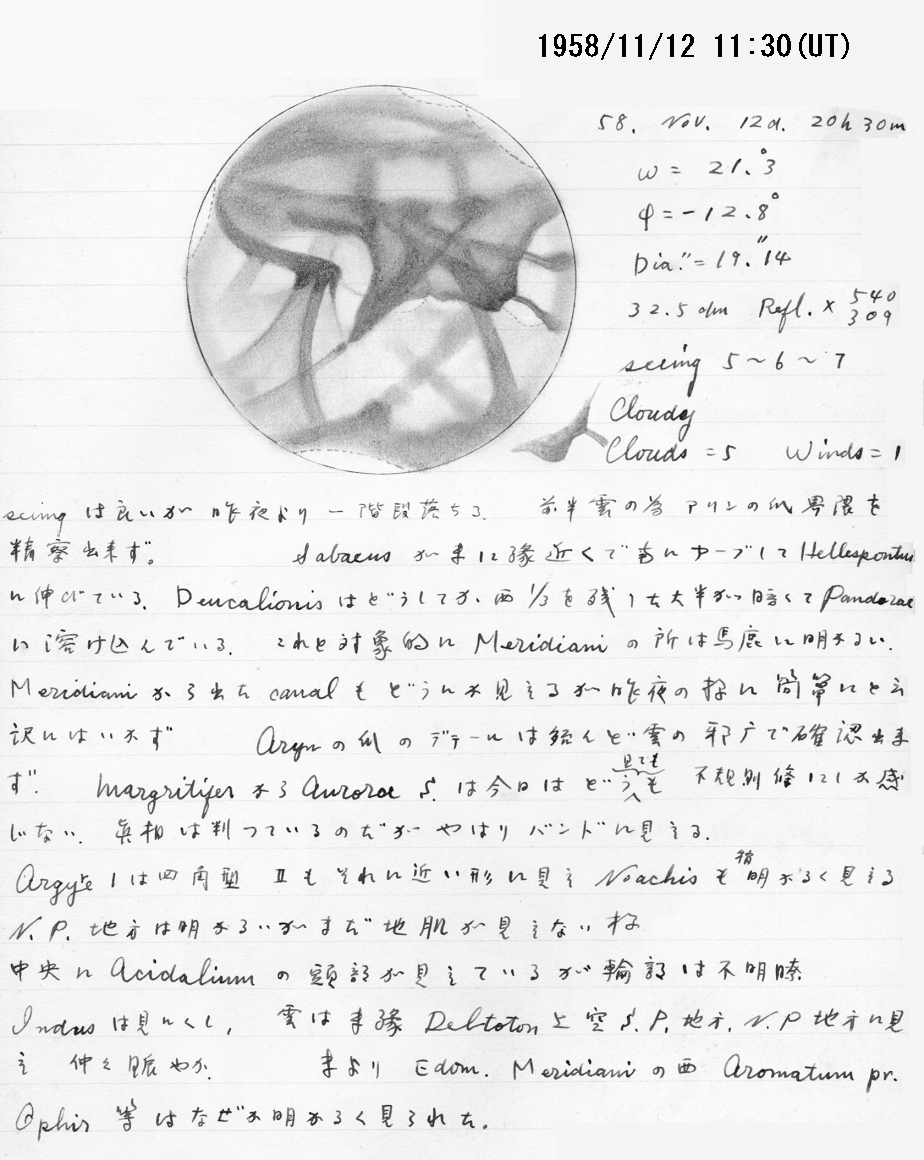 1958/11/12 11:30(UT)
58. Nov. 12d. 20h 30m
ω = 21.°3
φ = -12.8°
Dia." = 19."14
32.5 cm Refl. × 540
309
seeing 5～6～7
Cloudy
Clouds = 5 Winds = 1
seeing は良いが 昨夜より一階段落ちる. 前半雲の為 アリンの爪界隈を
精察出来ず。 Sabaeus が 東に縁近くで 南にカーブして Hellespontus
に伸びている. Deucalionis はどうしてか、西 1/3 を残した大半が暗くて Pandorae
に溶け込んでいる. これと対象的に Meridiani の所は馬鹿に明かるい.
Meridiani から出た canal もどうにか見えるが昨夜の様に簡単にと云
訳にはいかず Aryn の爪のデテールは殆んど雲の邪广で確認出来
ず. Margritifer から Aurorae S. は今日はどう見ても 不規則條にしか感
じない. 真相は判っているのだが やはり バンドに見える.
Argyre I は四角型 II もそれに近い形に見え Noachis も稍明かるく見える
N.P. 地方は明かるいがまだ地肌が見えない様
中央に Acidalium の頭部が見えているが輪郭は不明瞭
Indus は見にくし, 雲は東縁 Deltoton 上空 S.P. 地方, N.P 地方に見
え 仲々賑やか. 東より Edom. Meridiani の西 Aromatum pr.
Ophir 等はなぜか明かるく見られた.